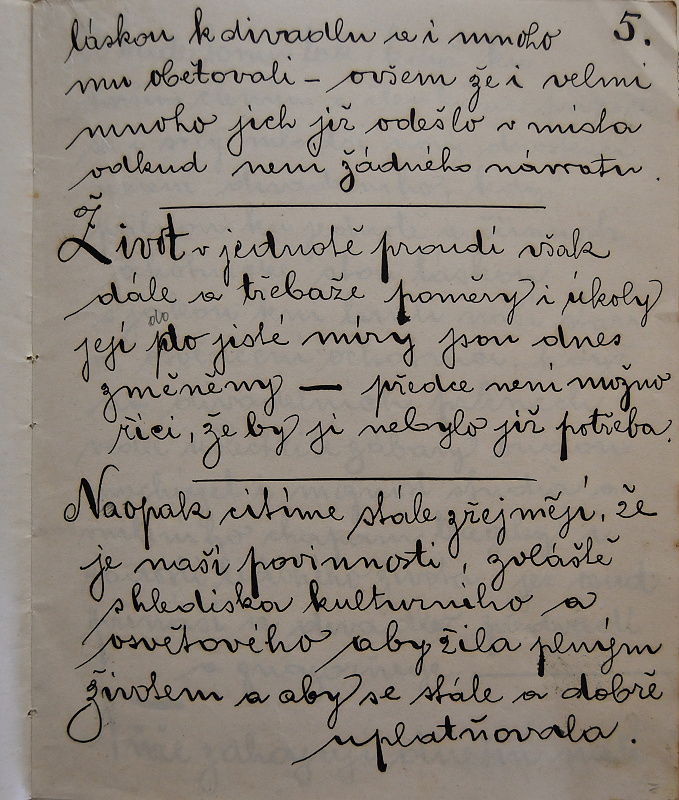 5.
láskou k divadlu a i mnoho
mu obětovali – ovšem že i velmi
mnoho jich již odešlo v místa
odkud není žádného návratu.
Život v jednotě proudí však
dále a třebaže poměry i úkoly
do
její do jisté míry jsou dnes
změněny — předce není možno
říci, že by jí nebylo již potřeba.
Naopak cítíme stále zřejměji, že
je naší povinností, zvláště
s hlediska kulturního a
osvětového aby žila plným
životem a aby se stále a dobře
uplatňovala.